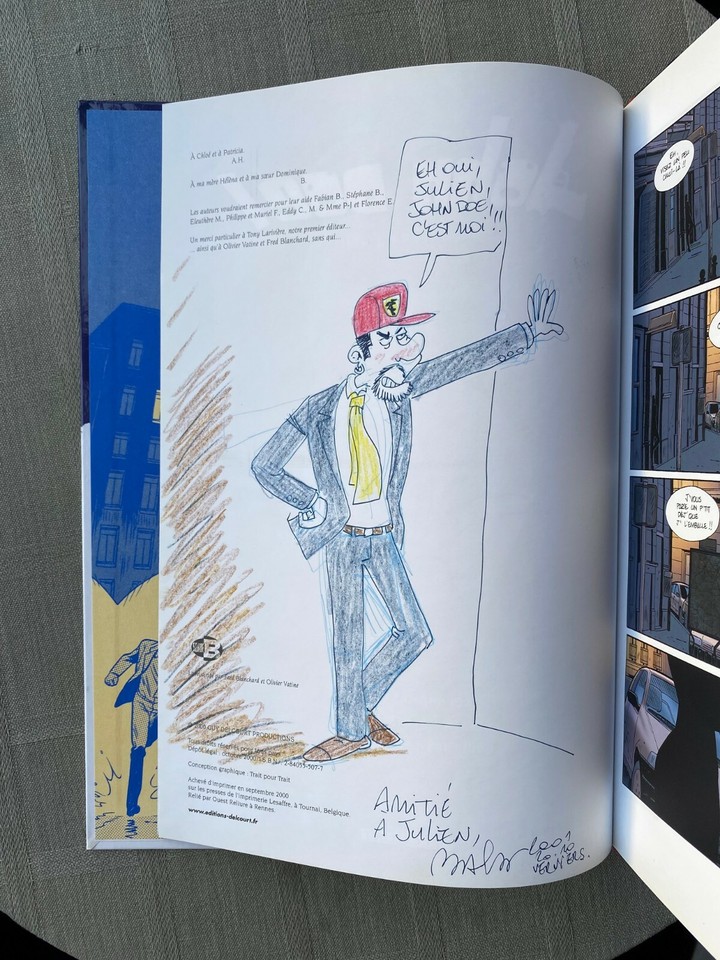 À Chloé et à Patricia.
A.H.
À ma mère Héléna et à ma sœur Dominique.
B.
Les auteurs voudraient remercier pour leur aide Fabian B., Stéphane B.,
Eleuthère M., Philippe et Muriel F., Eddy C., M. & Mme P-J et Florence E.
Un merci particulier à Tony Larivière, notre premier éditeur...
... ainsi qu'à Olivier Vatine et Fred Blanchard, sans qui...
EH OUI,
JULIEN,
JOHN DOE!,
C'EST MOI!!
B
par Fred Blanchard et Olivier Vatine
GUY DELCOURT PRODUCTIONS
Tous droits réservés pour tous pays
Dépôt légal : octobre 2000. I.S.B.N. : 2-84055-507-1
Conception graphique : Trait pour Trait
Achevé d'imprimer en septembre 2000
sur les presses de l'imprimerie Lesaffre, à Tournai, Belgique.
Relié par Ouest Reliure à Rennes.
www.editions-delcourt.fr
AMITIÉ
A JULIEN,
2001
20.10
VERVIERS.
EH,
VISEZ UN PEU
CELUI-LÀ !!
J'VOUS
PAIE UN P'TIT
DÉJ' QUE
J' L'EMBALLE !!